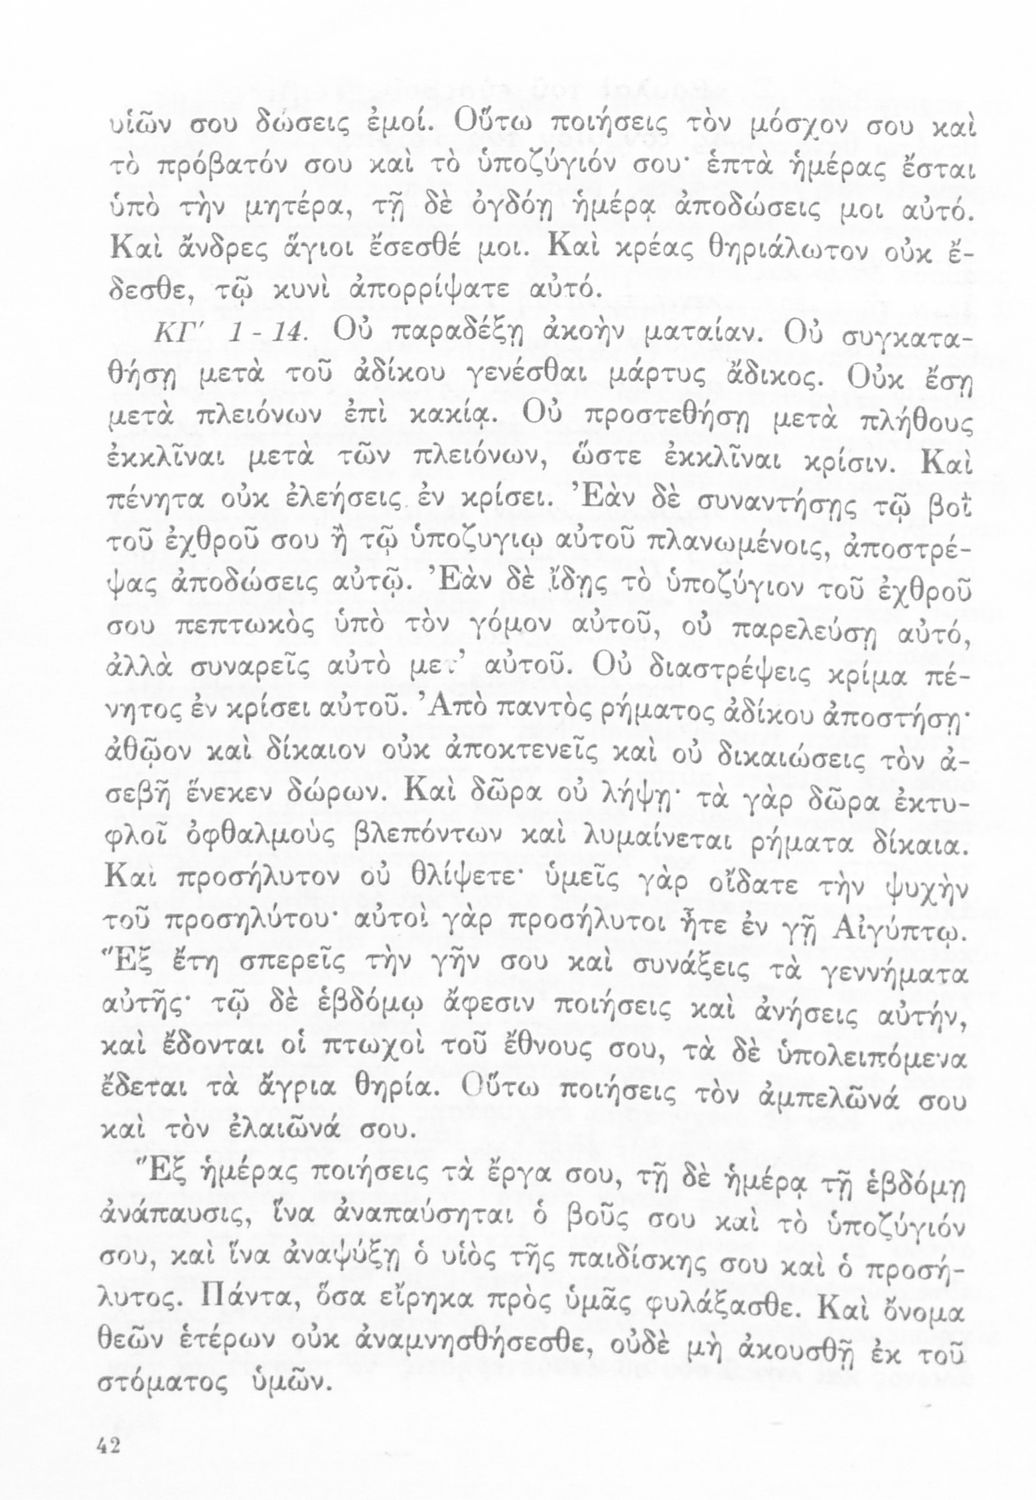 υἱῶν σου δώσεις ἐμοί. Οὕτω ποιήσεις τὸν μόσχον σου καὶ
τὸ πρόβατόν σου καὶ τὸ ὑποζύγιόν σου· ἑπτὰ ἡμέρας ἔσται
ὑπὸ τὴν μητέρα, τῇ δὲ ὀγδόῃ ἡμέρᾳ ἀποδώσεις μοι αὐτό.
Καὶ ἄνδρες ἅγιοι ἔσεσθέ μοι. Καὶ κρέας θηριάλωτον οὐκ ἔ-
δεσθε, τῷ κυνὶ ἀπορρίψατε αὐτό.
ΚΓ′ 1 - 14. Οὐ παραδέξῃ ἀκοὴν ματαίαν. Οὐ συγκατα-
θήσῃ μετὰ τοῦ ἀδίκου γενέσθαι μάρτυς ἄδικος. Οὐκ ἔσῃ
μετὰ πλειόνων ἐπὶ κακίᾳ. Οὐ προστεθήσῃ μετὰ πλήθους
ἐκκλῖναι μετὰ τῶν πλειόνων, ὥστε ἐκκλῖναι κρίσιν. Καὶ
πένητα οὐκ ἐλεήσεις ἐν κρίσει. Ἐὰν δὲ συναντήσῃς τῷ βοῒ
τοῦ ἐχθροῦ σου ἢ τῷ ὑποζυγιῳ αὐτοῦ πλανωμένοις, ἀποστρέ-
ψας ἀποδώσεις αὐτῷ. Ἐὰν δὲ ἴδῃς τὸ ὑποζύγιον τοῦ ἐχθροῦ
σου πεπτωκὸς ὑπὸ τὸν γόμον αὐτοῦ, οὐ παρελεύσῃ αὐτό,
ἀλλὰ συναρεῖς αὐτὸ μετ’ αὐτοῦ. Οὐ διαστρέψεις κρίμα πέ-
νητος ἐν κρίσει αὐτοῦ. Ἀπὸ παντὸς ρήματος ἀδίκου ἀποστήσῃ·
ἀθῷον καὶ δίκαιον οὐκ ἀποκτενεῖς καὶ οὐ δικαιώσεις τὸν ἀ-
σεβῆ ἕνεκεν δώρων. Καὶ δῶρα οὐ λήψῃ· τὰ γὰρ δῶρα ἐκτυ-
φλοῖ ὀφθαλμοὺς βλεπόντων καὶ λυμαίνεται ρήματα δίκαια.
Καὶ προσήλυτον οὐ θλίψετε· ὑμεῖς γὰρ οἴδατε τὴν ψυχὴν
τοῦ προσηλύτου· αὐτοὶ γὰρ προσήλυτοι ἦτε ἐν γῇ Αἰγύπτῳ.
Ἕξ ἔτη σπερεῖς τὴν γῆν σου καὶ συνάξεις τὰ γεννήματα
αὐτῆς· τῷ δὲ ἑβδόμῳ ἄφεσιν ποιήσεις καὶ ἀνήσεις αὐτήν,
καὶ ἔδονται οἱ πτωχοὶ τοῦ ἔθνους σου, τὰ δὲ ὑπολειπόμενα
ἔδεται τὰ ἄγρια θηρία. Οὕτω ποιήσεις τὸν ἀμπελῶνά σου
καὶ τὸν ἐλαιῶνά σου.
Ἕξ ἡμέρας ποιήσεις τὰ ἔργα σου, τῇ δὲ ἡμέρᾳ τῇ ἑβδόμῃ
ἀνάπαυσις, ἵνα ἀναπαύσηται ὁ βοῦς σου καὶ τὸ ὑποζύγιόν
σου, καὶ ἵνα ἀναψύξῃ ὁ υἱὸς τῆς παιδίσκης σου καὶ ὁ προσή-
λυτος. Πάντα, ὅσα εἴρηκα πρὸς ὑμᾶς φυλάξασθε. Καὶ ὄνομα
θεῶν ἑτέρων οὐκ ἀναμνησθήσεσθε, οὐδὲ μὴ ἀκουσθῇ ἐκ τοῦ
στόματος ὑμῶν.
42